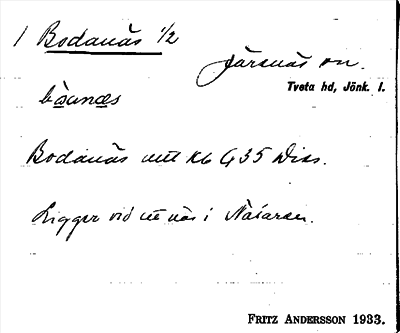 1 Bodanäs 1/2
Järsnäs sn.
Tveta hd, Jönk. l.
bo̱anæs
Bodanäs mtl Kb G35 Diss.
Ligger vid ett näs i Nätaren.
FRITZ ANDERSSON 1933.